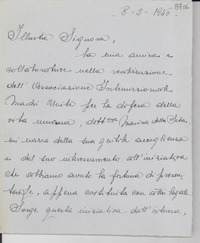 8-2-1969
Illustre Signora,
la mia amica e
collaboratrice nella realizzazione
dell'Associazione Internazionale
Madri Unite per la difesa della
vita umana, dott.ssa Marina della
mi narra della sua gentile accoglienza
e del suo interessamento all'iniziativa
che abbiamo avuto la fortuna di
appena costituita con atti legali
Sorge questa iniziativa dall'interno,